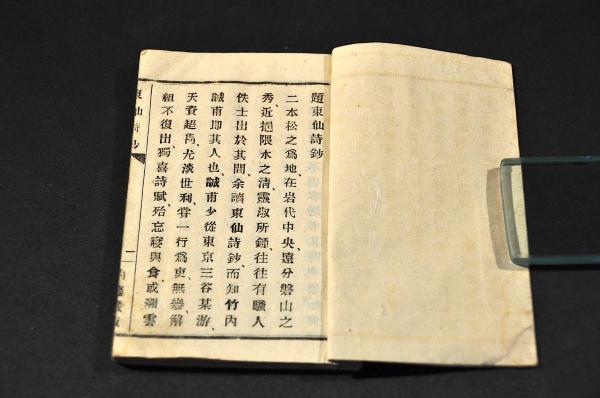 題東仙詩鈔
二本松之爲地、在岩代中央、遠分磐山之
秀、近挹隈水之淸、靈淑所鍾、往往有騷人
佚士出於其間、余讀東仙詩鈔、而知竹內
誠甫卽其人也、誠甫少從東京三谷某游、
天資超尙、尤淡世利、嘗一行爲吏、無幾解
組不復出、獨喜詩賦、殆忘寢與食、或溯雲
東仙詩鈔
二